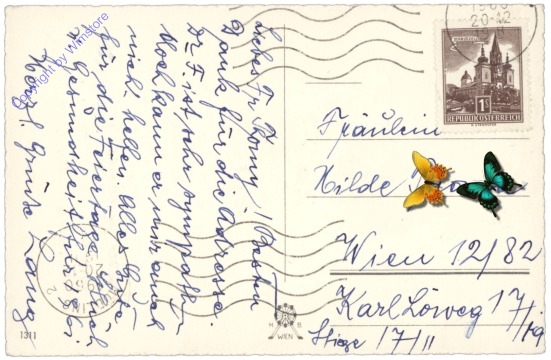 Liebe Fr. Romy! Besten
Dank für die Adresse.
Dr. F. ist sehr sympath.
Noch kann er mir auch
nicht helfen. Alles Gute
für die Feiertage
u. Gesundheit
Herzl. Grüße
Fräulein
Hilde
Wien 12/82
Karl Löweg 17/
Stiege 17/11
REPUBLIK ÖSTERREICH
1S
20·12
H B
WIEN
1311
Copyright by Wanstore